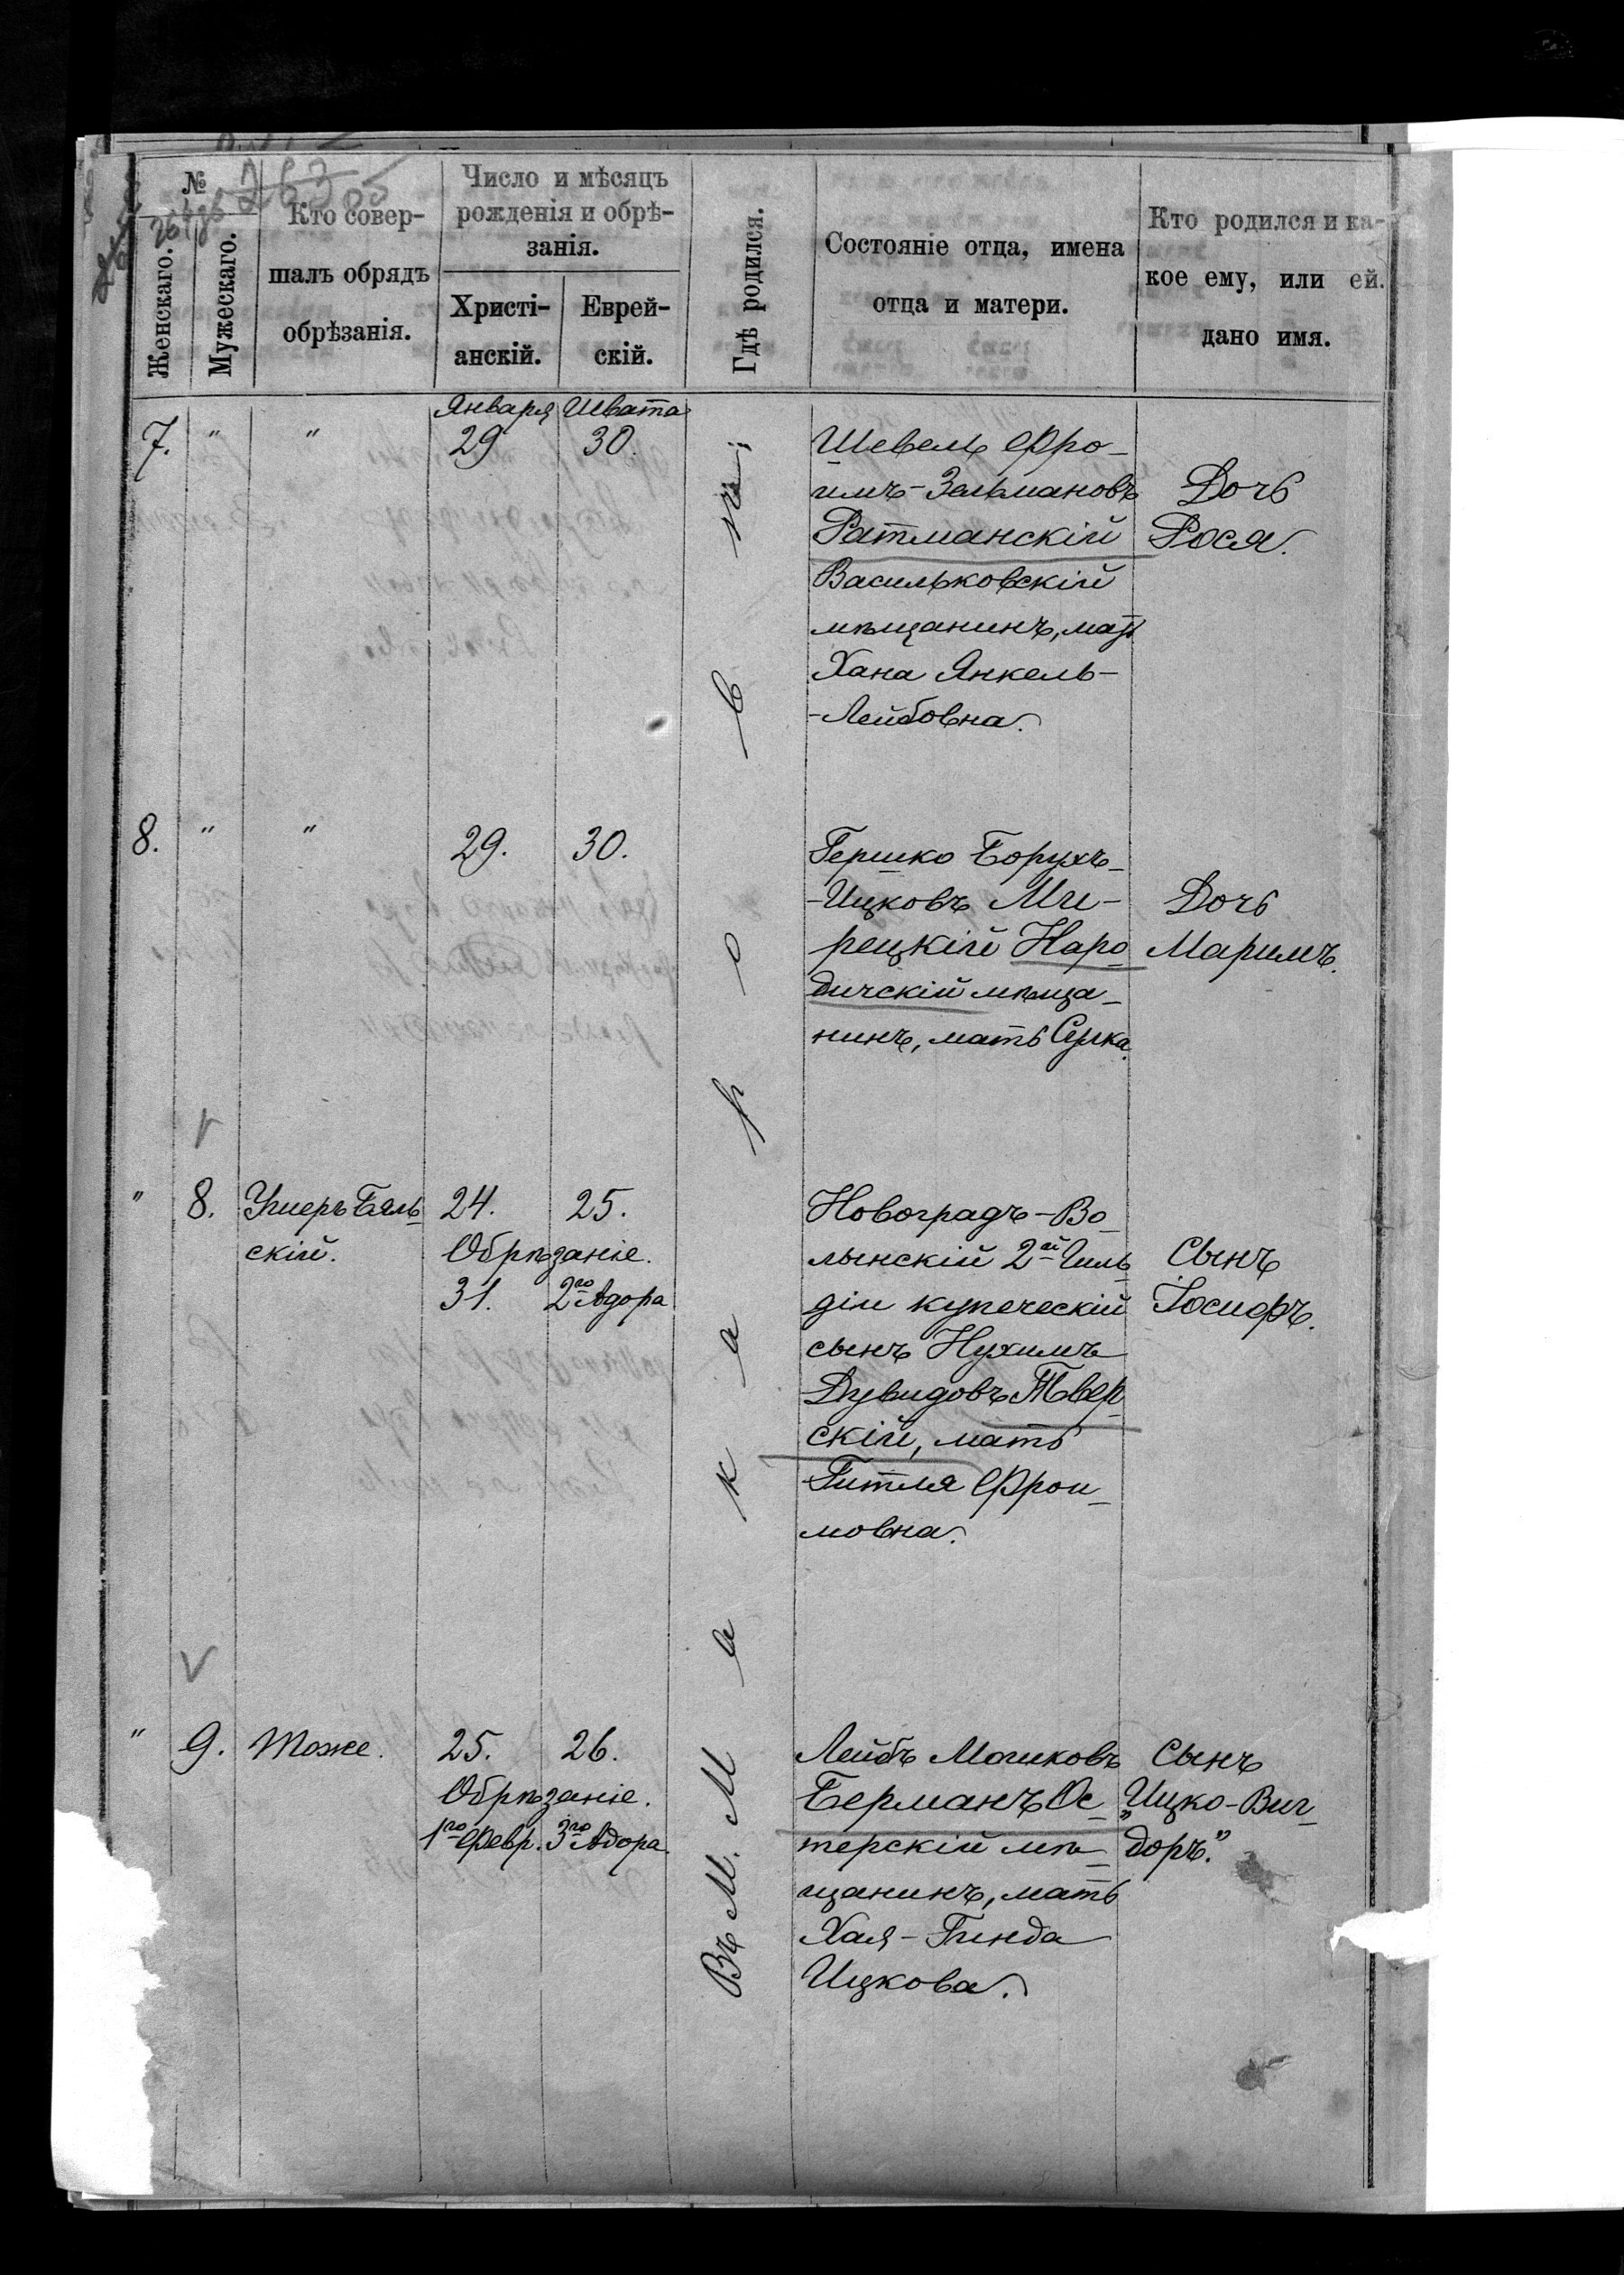 №
Женскаго.
Мужескаго.
Кто совер-
шалъ обрядъ
обрѣзанія.
Число и мѣсяцъ
рожденія и обрѣ-
занія.
Христі-
анскій.
Еврей-
скій.
Гдѣ родился.
Состояніе отца, имена
отца и матери.
Кто родился и ка-
кое ему, или ей.
дано имя.
Въ М. Макаровѣ
Января Швата
7. " " 29 30.
Шевель Фро-
имъ-Зельмановъ
Ратманскій
Васильковскій
мѣщанинъ, мать
Хана Янкель-
-Лейбовна.
Дочь
Рося.
8. " " 29. 30.
Гершко Борухъ-
-Ицковъ Ми-
рецкій Наро-
дичскій мѣща-
нинъ, мать Сурка.
Дочь
Маримъ.
" 8. Ушеръ Бяль-
скій.
24. 25.
Обрѣзаніе.
31. 2го Адора
Новоградъ-Во-
лынскій 2ай Гиль-
діи купеческій
сынъ Нухимъ
Дувидовъ Твер-
скій, мать
Гитля Фрои-
мовна.
Сынъ
Іосифъ.
" 9. Тоже. 25. 26.
Обрѣзаніе.
1го Февр. 3го Адора.
Лейбъ Мошковъ
Берманъ Ос-
терскій мѣ-
щанинъ, мать
Хая-Гинда
Ицкова.
Сынъ
"Ицко-Виг-
доръ."